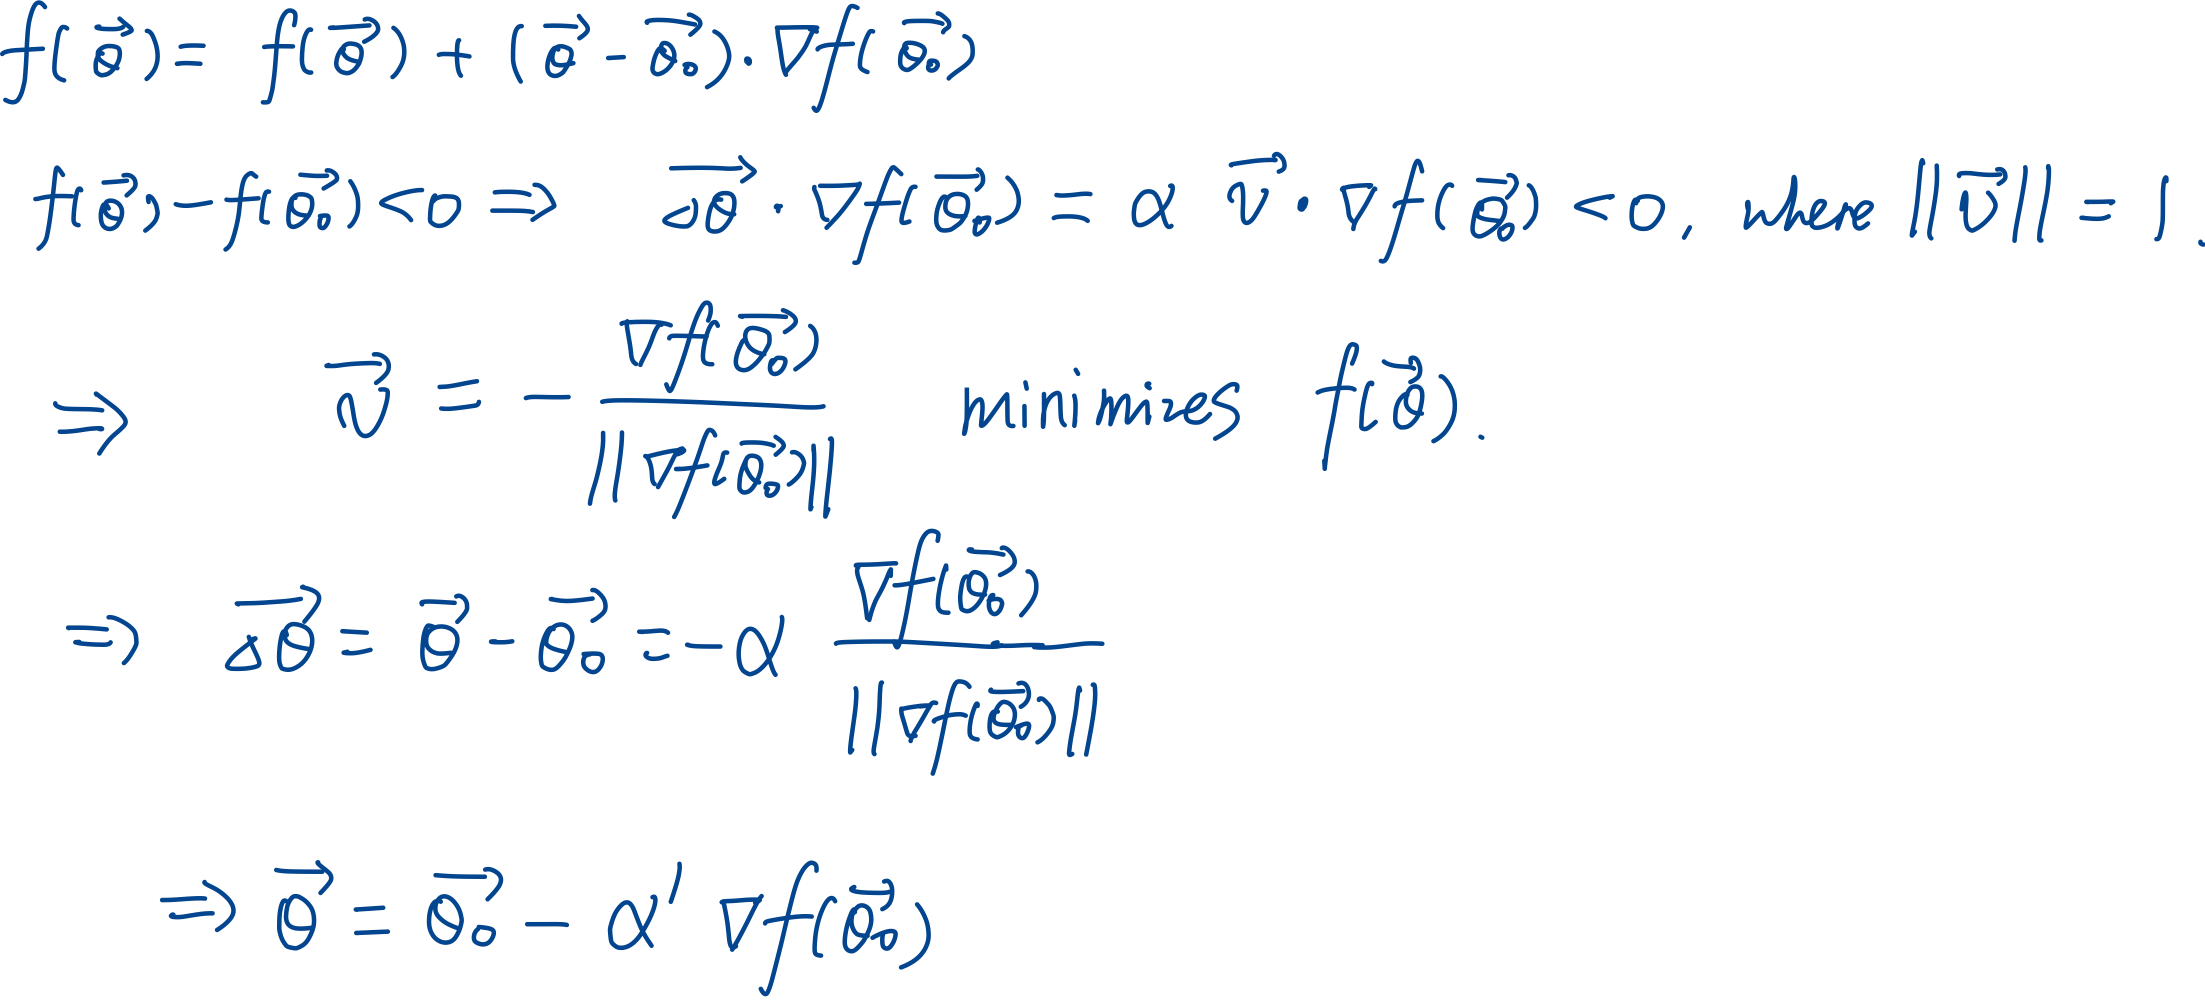 f(θ⃗) = f(θ⃗) + (θ⃗ - θ⃗₀)·∇f(θ⃗₀)
f(θ⃗) - f(θ⃗₀) < 0 ⇒ Δθ⃗ · ∇f(θ⃗₀) = α v⃗ · ∇f(θ⃗₀) < 0, where ||v⃗|| = 1.
⇒ v⃗ = - ∇f(θ⃗₀) / ||∇f(θ⃗₀)|| minimizes f(θ⃗).
⇒ Δθ⃗ = θ⃗ - θ⃗₀ = -α ∇f(θ⃗₀) / ||∇f(θ⃗₀)||
⇒ θ⃗ = θ⃗₀ - α' ∇f(θ⃗₀)